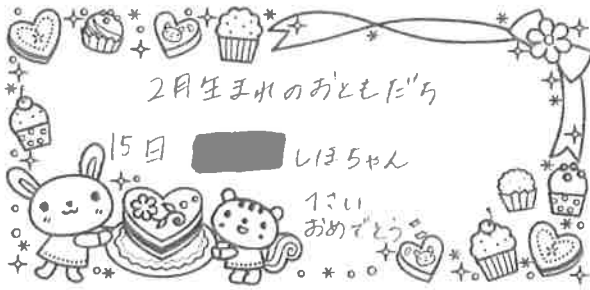 2月生まれのおともだち
15日 しほちゃん
1さい
おめでとう